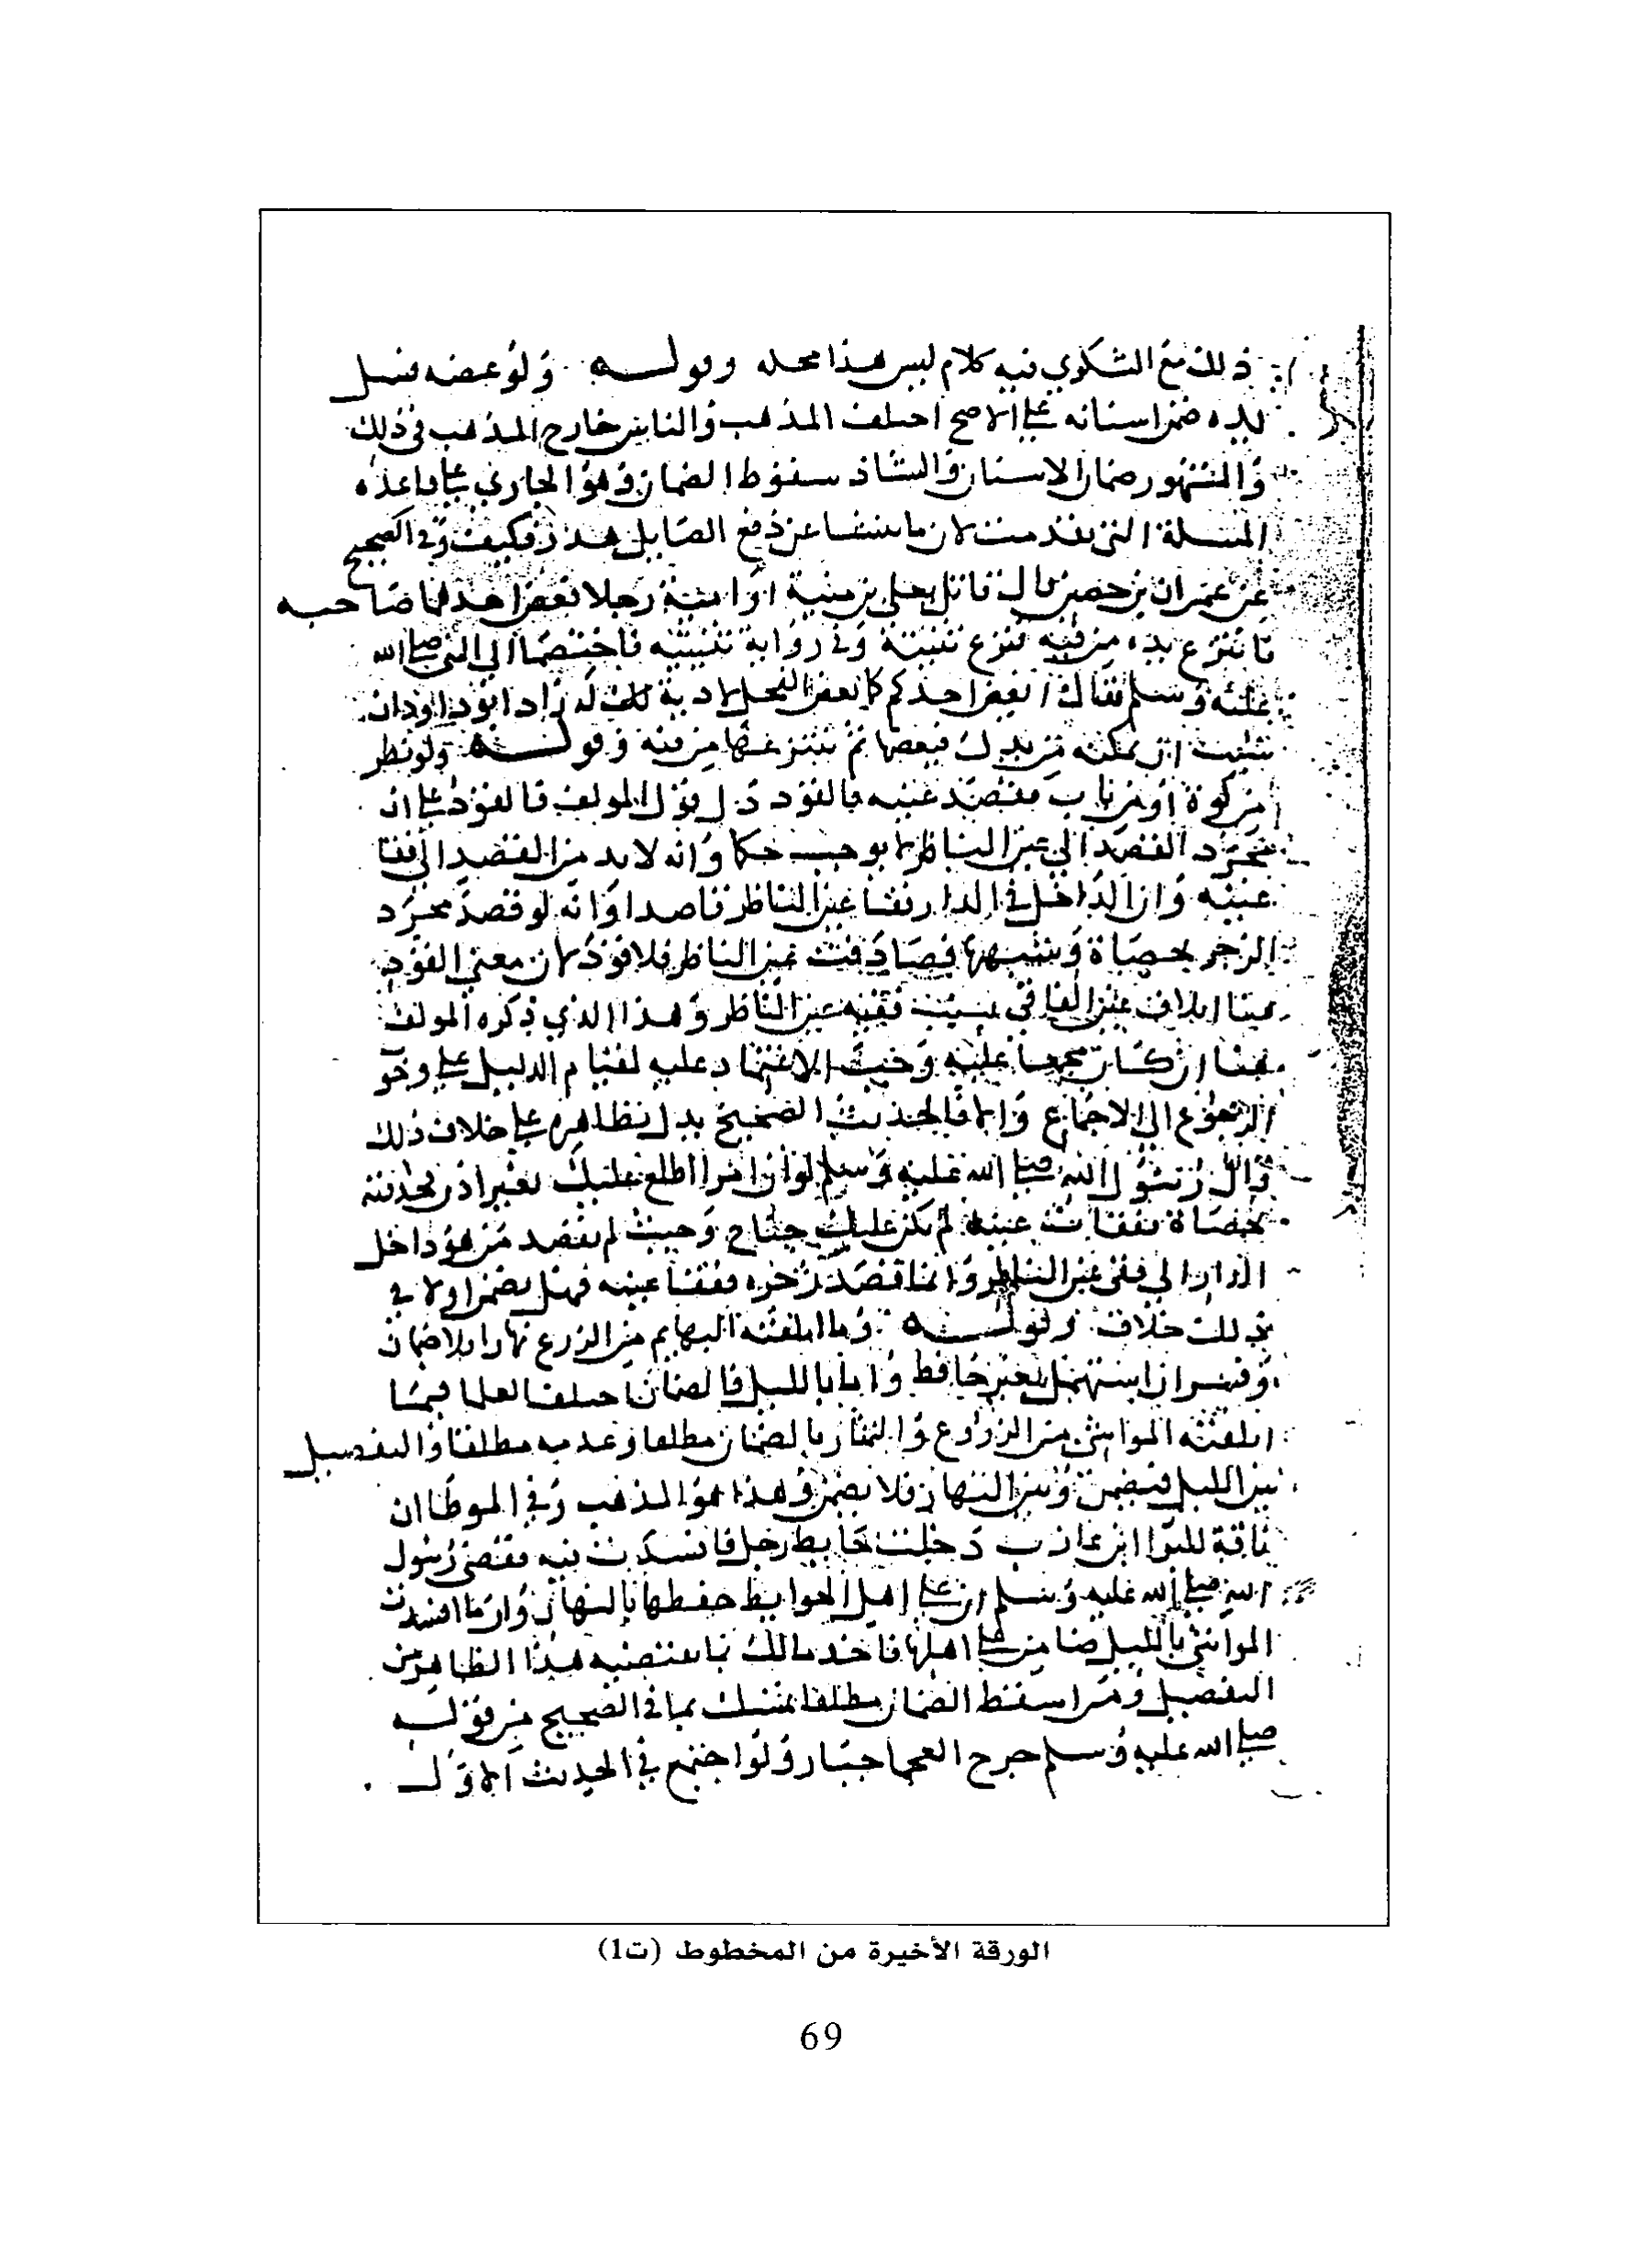 ذلك مع الشكوي فيه كلام ليس هذا محله وقولـــه ولو عضه فسل
يده ضمن اسنانه على الاصح اختلف المذهب والناس خارج المذهب في ذلك
والمشهور ضمان الاسنان والشاذ سقوط الضمان وهو الجاري على قاعدة
المسلة التي تقدمت لان ما ينشا عن دفع الصايل هدر فكيف وفي الصحيح
عن عمران بن حصين قال قاتل يعلى بن منية او امية رجلا فعض احدهما صاحبه
فانتزع يده من فيه فنزع ثنيته وفي رواية ثنيتيه فاختصما الى النبي صلى الله
عليه وسلم فقال ايعض احدكم كما يعض الفحل لا دية لك زاد ابو داود ان
شيت ان تمكنه من يدك فيعضها ثم تنتزعها من فيه وقولـــه ولو نظر
من كوة او من باب فقصد عينه فالقود دل قول المولف فالقود على ان
مجرد القصد الى عين الناظر لا يوجب حكما وانه لا بد من القصد الى فقا
عينيه وان الداخل في الدار فقا عين الناظر قاصدا وانه لو قصد مجرد
الزجر بحصاة وشبهها فصادفت عين الناظر فلا قود لان معنى القود
هنا اتلاف عين الفاقي بسبب فقيه عين الناظر وهذا الذي ذكره المولف
هنا ان كان مجمعا عليه وجب الاعتماد عليه لقيام الدليل على وجو
الرجوع الى الاجماع والا فالحديث الصحيح يدل بظاهره على خلاف ذلك
قال رسول الله صلى الله عليه وسلم لو ان امرا اطلع عليك بغير اذن فخذفته
بحصاة ففقات عينه لم يكن عليك جناح وحيث لم يقصد من هو داخل
الدار الى فقي عين الناظر وانما قصد زجره ففقا عينه فهل يضمن او لا في
ذلك خلاف وقولـــه وما اتلفته البهايم من الزرع نهارا فلا ضمان
وفسر ان استهمل بغير حافظ واما بالليل فالضمان اختلف العلما فيما
اتلفته المواشي من الزروع والثمار بالضمان مطلقا وعدمه مطلقا والتفصيل
بين الليل فيضمن وبين النهار فلا يضمن وهذا هو المذهب وفي الموطا ان
ناقة للبرا ابن عازب دخلت حايط رجل فافسدت فيه فقضى رسول
الله صلى الله عليه وسلم ان على اهل الحوايط حفظها بالنهار وان ما افسدت
المواشي بالليل ضامن على اهلها فاخذ مالك بما يقتضيه هذا الظاهر من
التفصيل ومن اسقط الضمان مطلقا تمسك بما في الصحيح من قولـــه
صلى الله عليه وسلم جرح العجما جبار ولو اجتمع في الحديث الاول
الورقة الأخيرة من المخطوط (ت1)
69